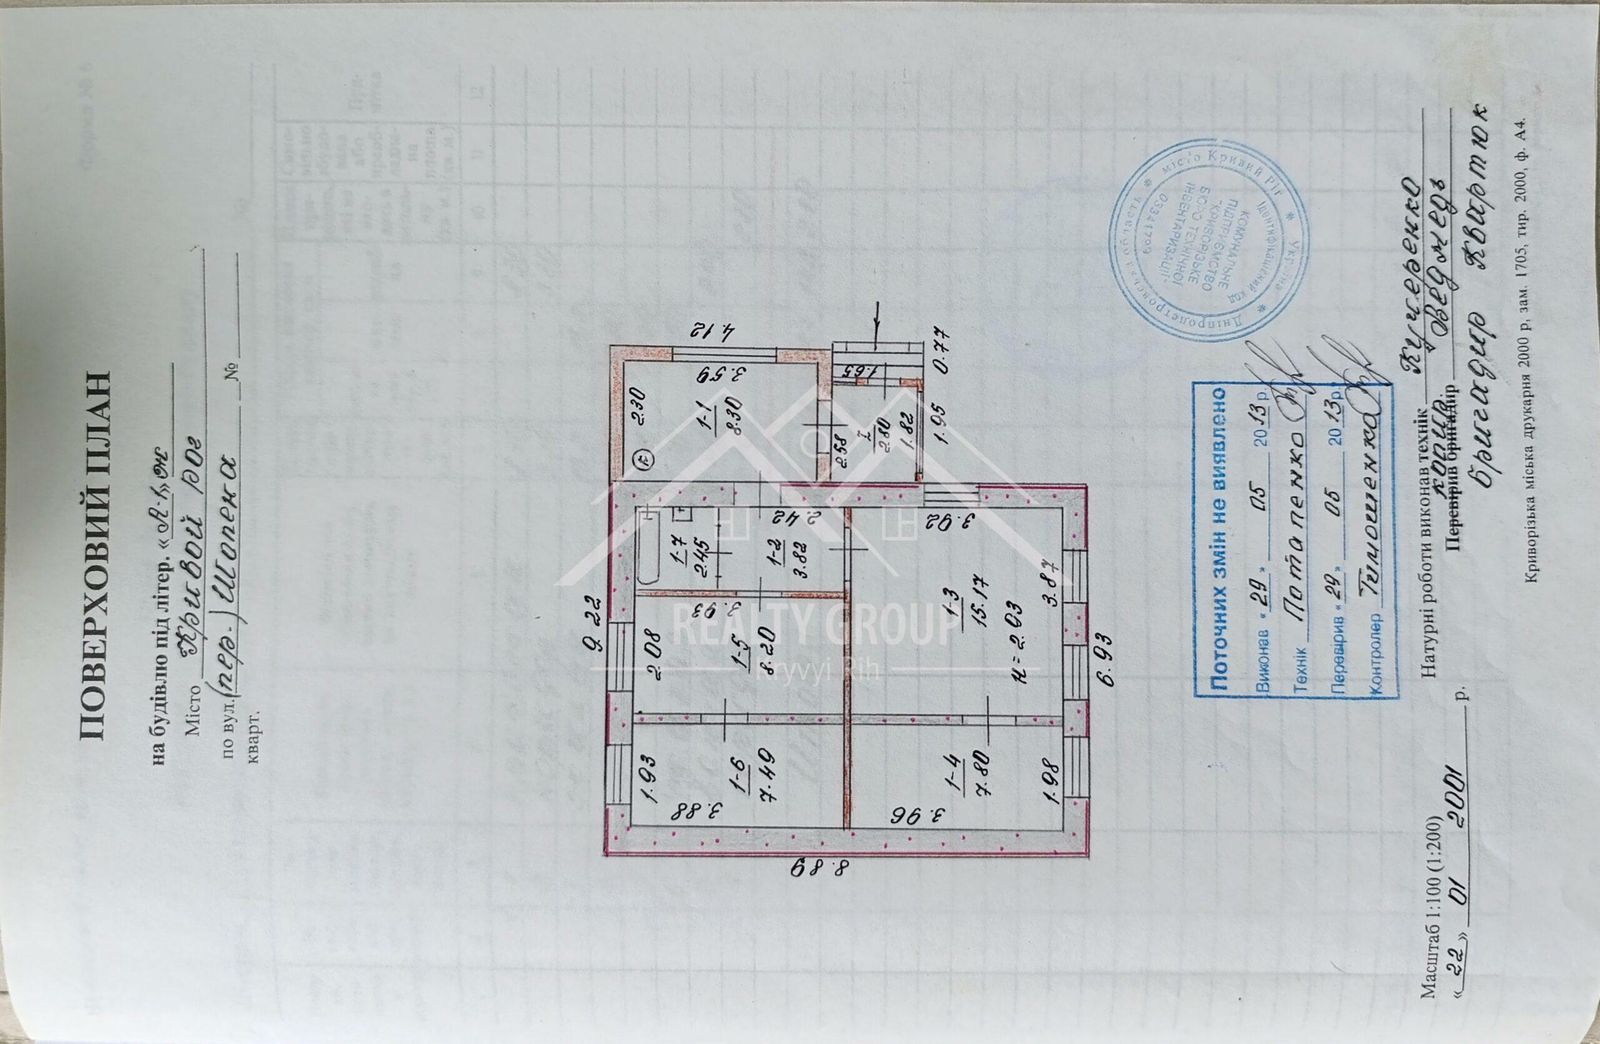 ПОВЕРХОВИЙ ПЛАН
на будівлю під літер. « А-1, ж
Місто Кривой рог
по вул. (пер.) Шопена №
кварт.
4.12
3.59
2.30
1-1
8.30
К
1.65
0.77
2.58
I
2.80
1.82
1.95
2.42
3.92
1-7
2.45
1-2
3.82
9.22
3.93
2.08
1-5
8.20
1-3
15.17
н=2.03
3.87
6.93
1.93
1-6
7.49
3.88
1-4
7.80
1.98
3.96
8.89
REALTY GROUP
Kryvyi Rih
Україна * Дніпропетровська область * місто Кривий Ріг *
Ідентифікаційний код 03341799
КОМУНАЛЬНЕ
ПІДПРИЄМСТВО
"КРИВОРІЗЬКЕ
БЮРО ТЕХНІЧНОЇ
ІНВЕНТАРИЗАЦІЇ"
Поточних змін не виявлено
Виконав « 29 » 05 2013 р.
Технік Потапенко
Перевірив « 29 » 05 2013 р.
Контролер Тимошенко
Масштаб 1:100 (1:200)
« 22 » 01 2001 р.
Натурні роботи виконав технік Кучеренко
Перевірив бригадир Ведмедь
бригадир Квартюк
Криворізька міська друкарня 2000 р, зам. 1705, тир. 2000, ф. А4.